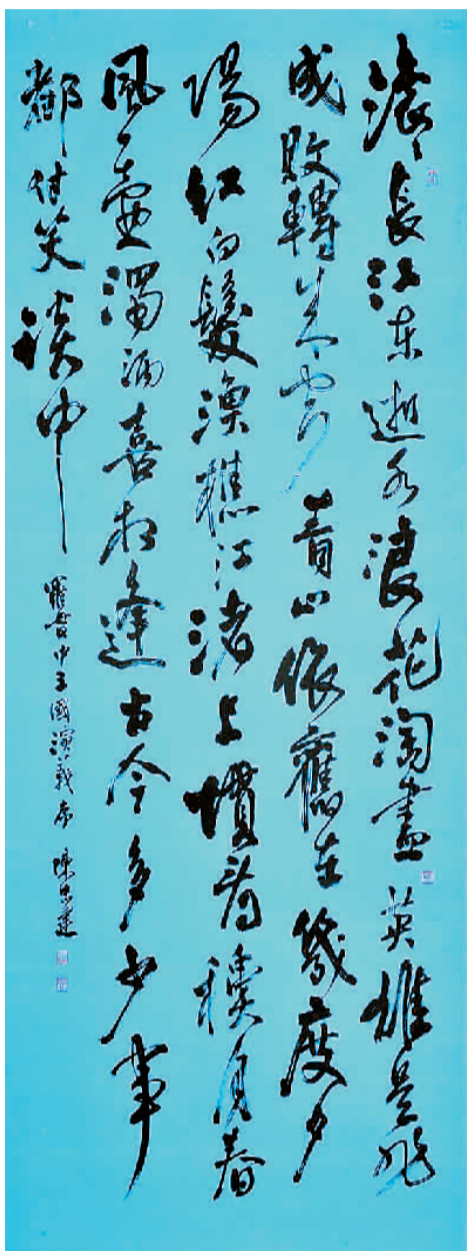 滾滾長江東逝水浪花淘盡英雄是非
成敗轉頭空青山依舊在幾度夕
陽紅白髮漁樵江渚上慣看秋月春
風一壺濁酒喜相逢古今多少事
都付笑談中
羅貫中三國演義序